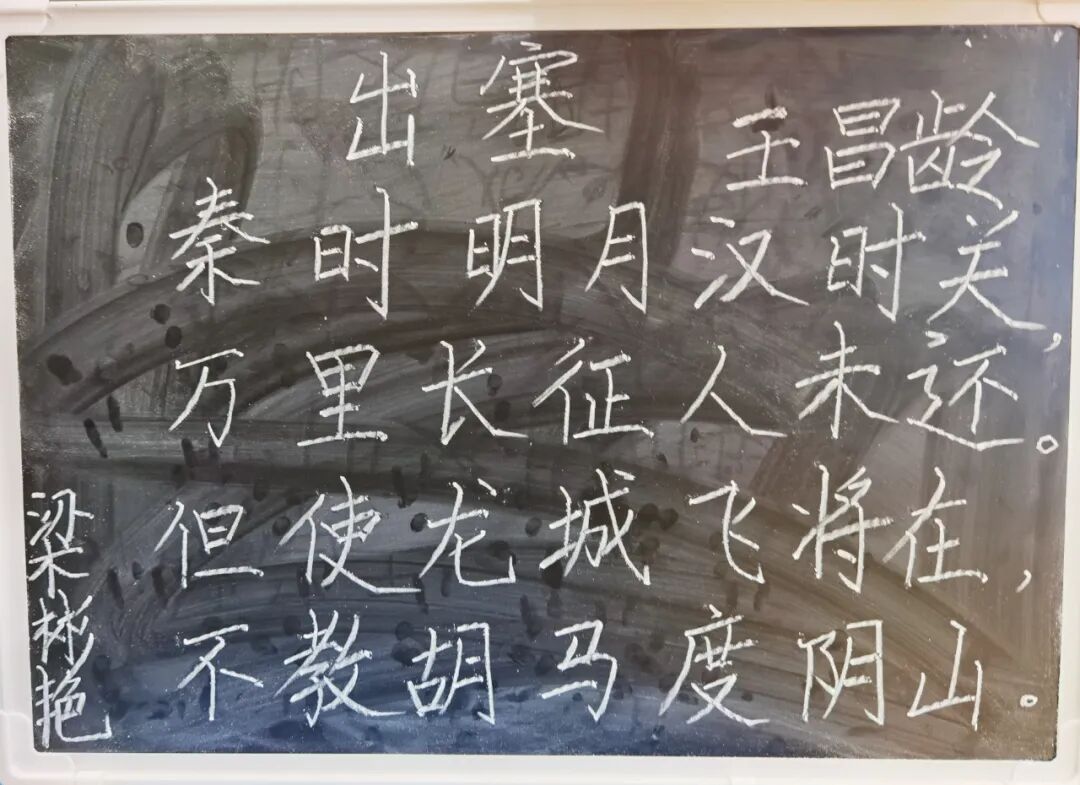 出塞
王昌龄
秦时明月汉时关，
万里长征人未还。
但使龙城飞将在，
不教胡马度阴山。
梁彬艳